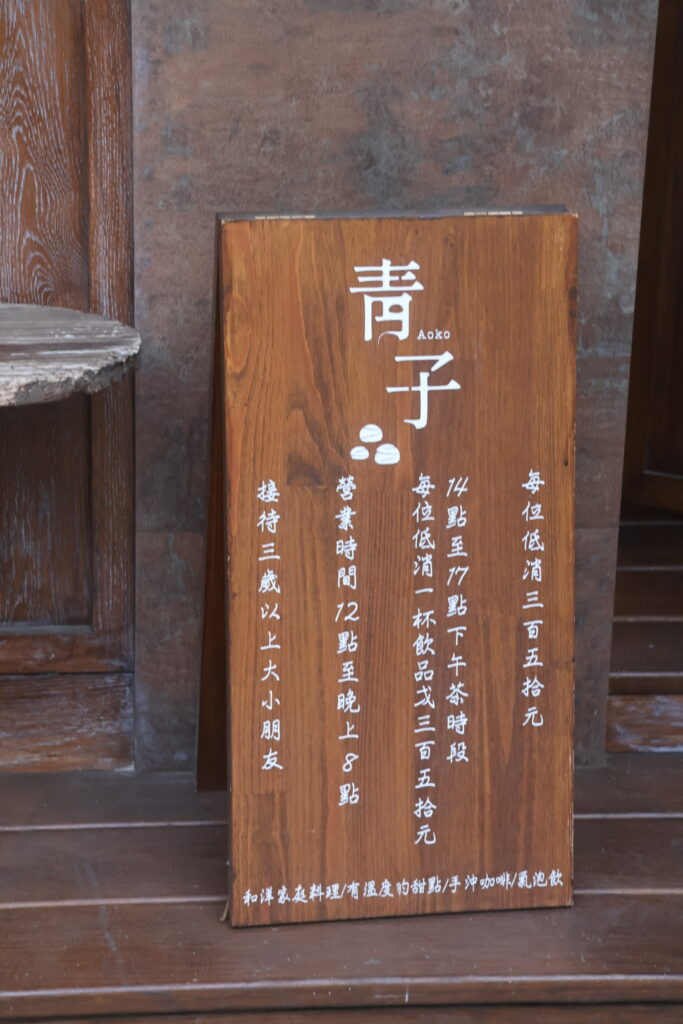 青子
Aoko
每位低消三百五拾元
14點至17點下午茶時段
每位低消一杯飲品戈三百五拾元
營業時間12點至晚上8點
接待三歲以上大小朋友
和洋家庭料理/有溫度的甜點/手沖咖啡/氣泡飲